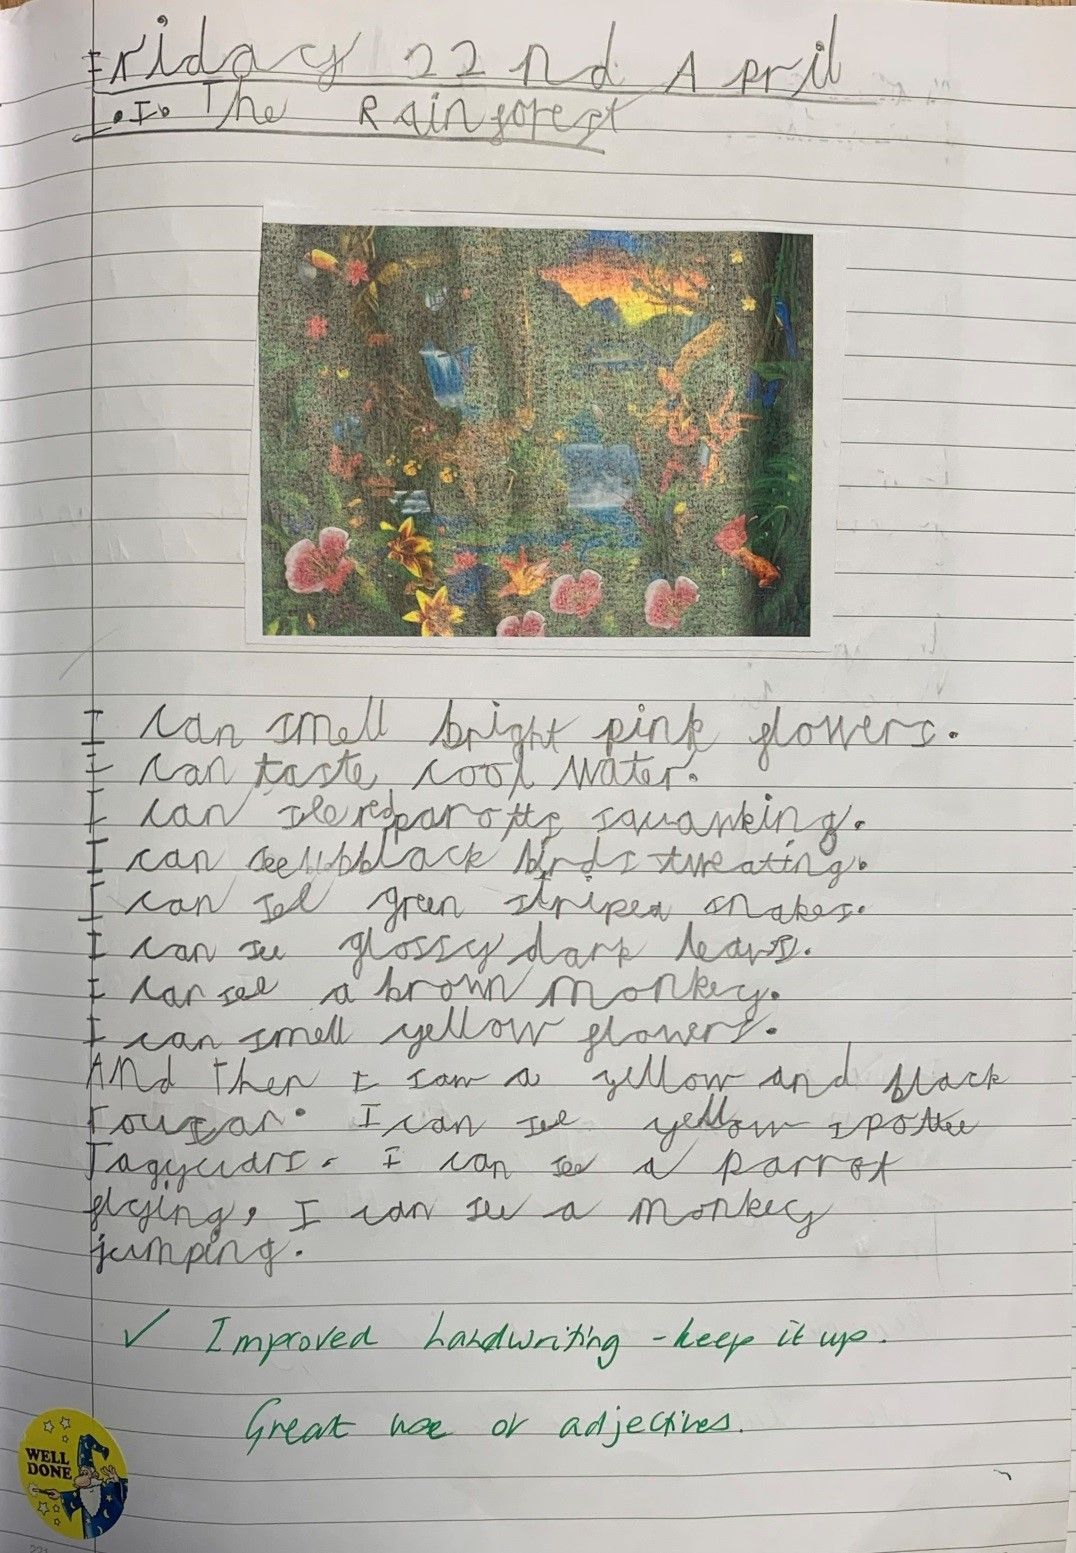 Friday 22nd April
L.I. The Rainforest
I can smell bright pink flowers.
I can taste cool water.
I can see red parotts squawking.
I can see black birds tweating.
I can see green striped snakes.
I can see glossy dark leavs.
I can see a brown monkey.
I can smell yellow flowers.
And then I saw a yellow and black
toucan. I can see yellow spotte
Jagyuars. I can see a parrot
flying, I can see a monkey
jumping.
✓ Improved handwriting - keep it up.
Great use of adjectives.
WELL
DONE